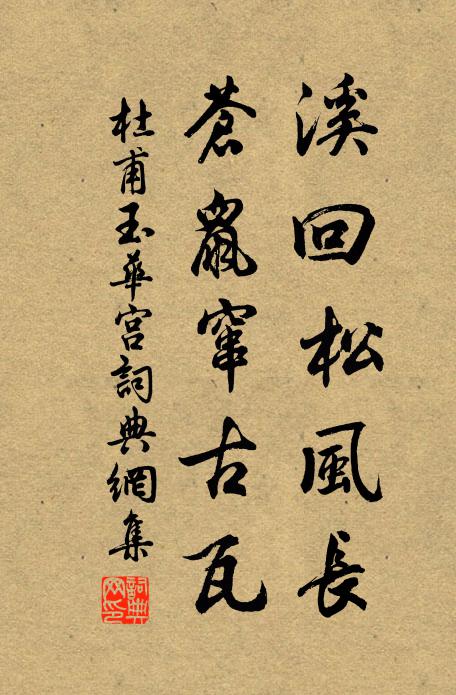 溪回松風長
蒼鼠竄古瓦
杜甫玉華宮詞典網集
詞典網印